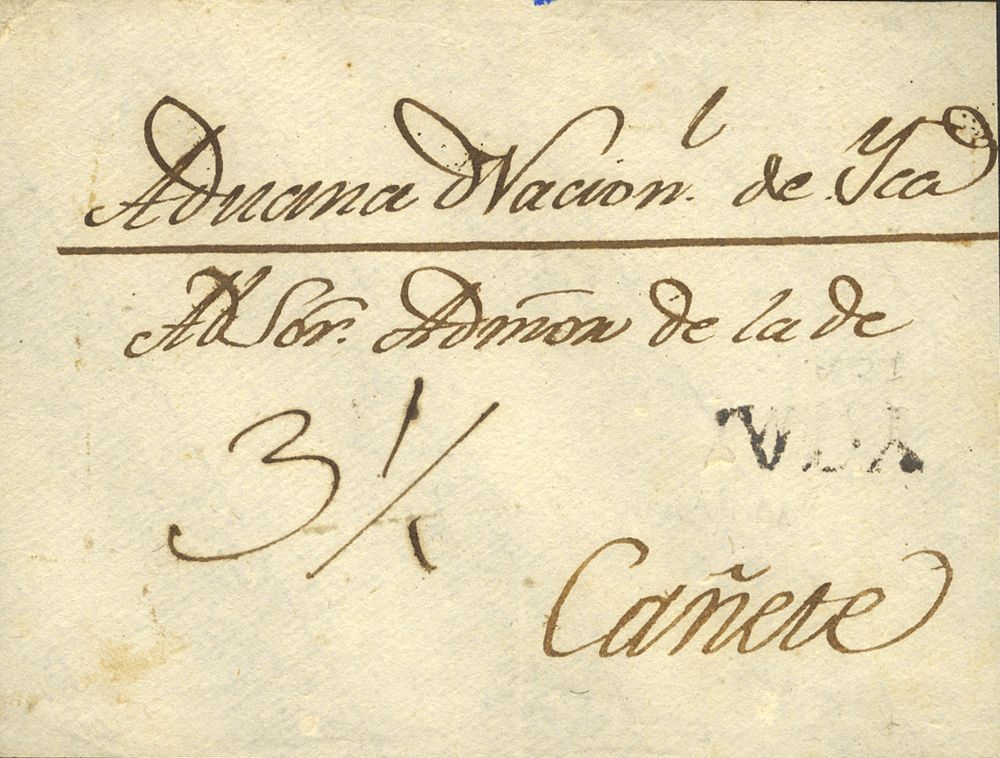 Aduana Nacion.l de Yca
Al Sõr. Admõn de la de
3 1/
Cañete